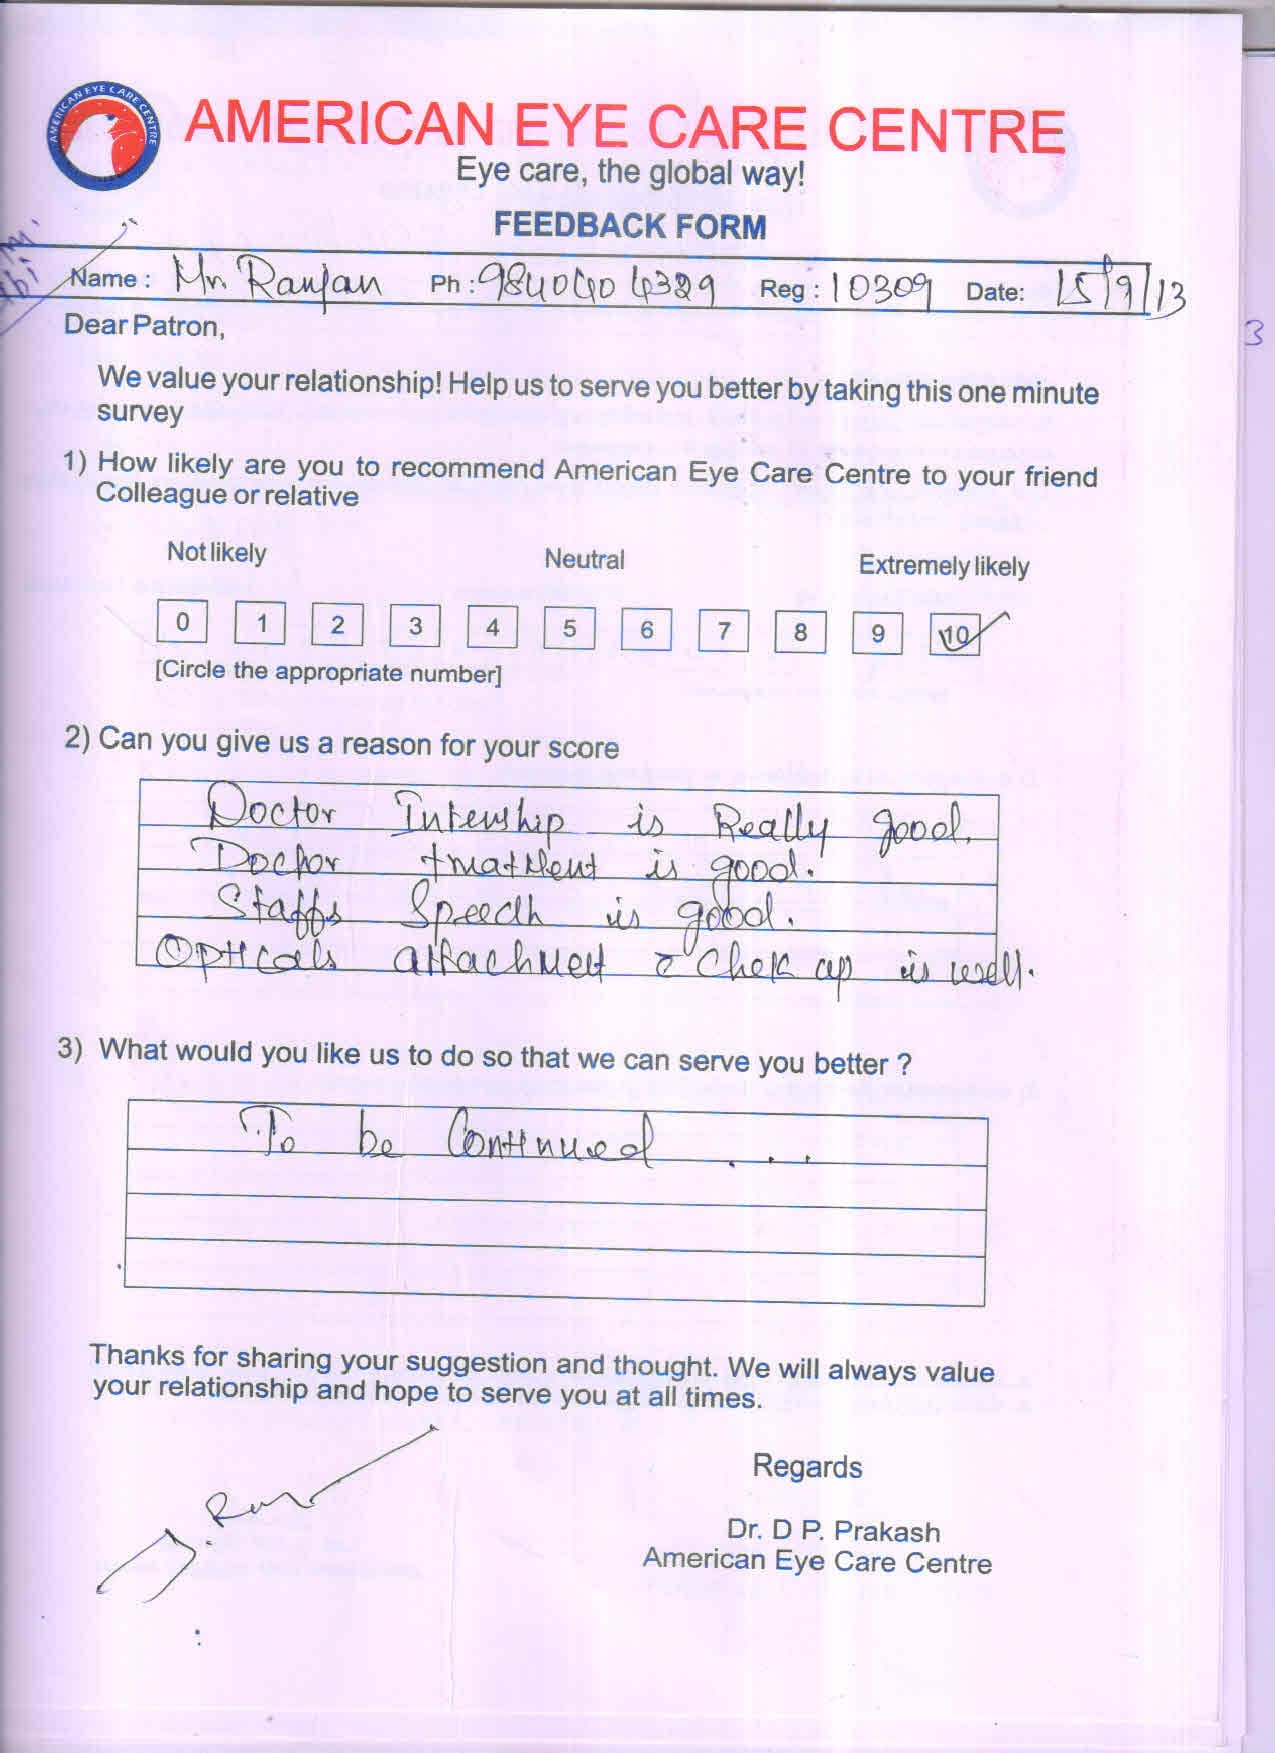 AMERICAN EYE CARE CENTRE
AMERICAN EYE CARE CENTRE
Eye care, the global way!
FEEDBACK FORM
Name : Mr. Ranjan Ph : 9840404329 Reg : 10309 Date: 15/9/13
Dear Patron,
3
We value your relationship! Help us to serve you better by taking this one minute
survey
1) How likely are you to recommend American Eye Care Centre to your friend
Colleague or relative
Not likely Neutral Extremely likely
0 1 2 3 4 5 6 7 8 9 10
[Circle the appropriate number]
2) Can you give us a reason for your score
Doctor Intenship is Really good.
Doctor is good.
Staffs Speech is good.
Opticals attachment & Chek up is well.
3) What would you like us to do so that we can serve you better ?
To be Continued ...
Thanks for sharing your suggestion and thought. We will always value
your relationship and hope to serve you at all times.
Regards
Dr. D P. Prakash
American Eye Care Centre